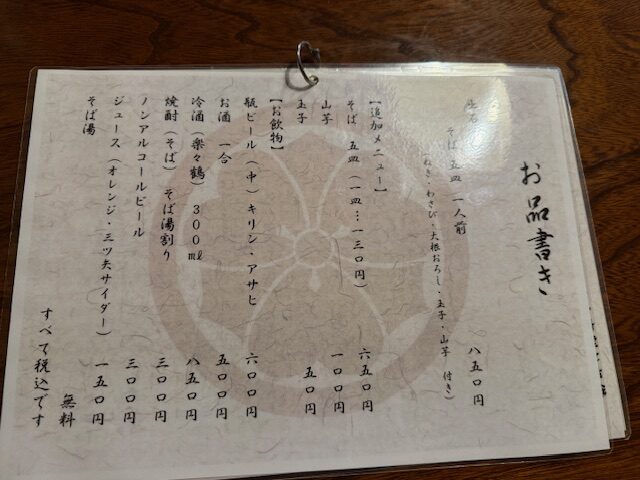 お品書き
そば 五皿 一人前 八五〇円
（ねぎ・わさび・大根おろし・玉子・山芋 付き）
【追加メニュー】
そば 五皿（一皿…一三〇円） 六五〇円
山芋 一〇〇円
玉子 五〇円
【お飲物】
瓶ビール（中）キリン・アサヒ 六〇〇円
お酒 一合 五〇〇円
冷酒（楽々鶴）３００㎖ 八五〇円
焼酎（そば）そば湯割り 三〇〇円
ノンアルコールビール 三〇〇円
ジュース（オレンジ・三ツ矢サイダー） 一五〇円
そば湯 無料
すべて税込です